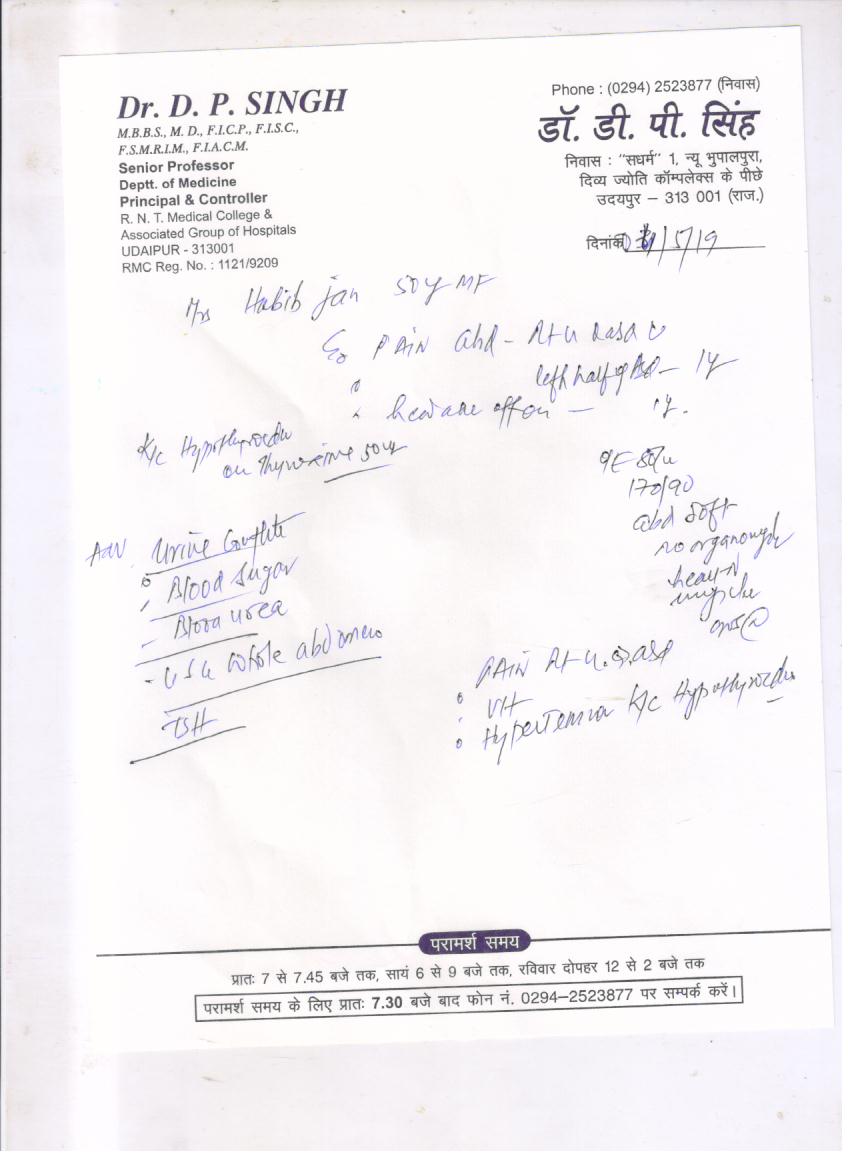 Dr. D. P. SINGH
M.B.B.S., M. D., F.I.C.P., F.I.S.C.,
F.S.M.R.I.M., F.I.A.C.M.
Senior Professor
Deptt. of Medicine
Principal & Controller
R. N. T. Medical College &
Associated Group of Hospitals
UDAIPUR - 313001
RMC Reg. No. : 1121/9209
Phone : (0294) 2523877 (निवास)
डॉ. डी. पी. सिंह
निवास : "सधर्म" 1, न्यू भुपालपुरा,
दिव्य ज्योति कॉम्पलेक्स के पीछे
उदयपुर – 313 001 (राज.)
दिनांक /5/19
Mrs Habib jan 50y MF
PAIN abd -
left half of - 1y
off on - 1y.
K/c
on 50
170/90
abd soft
no
Adv. Urine Complete
Blood Sugar
Blood urea
- USG whole abdomen
TSH
PAIN
Hypertension K/c
परामर्श समय
प्रातः 7 से 7.45 बजे तक, सायं 6 से 9 बजे तक, रविवार दोपहर 12 से 2 बजे तक
परामर्श समय के लिए प्रातः 7.30 बजे बाद फोन नं. 0294–2523877 पर सम्पर्क करें।